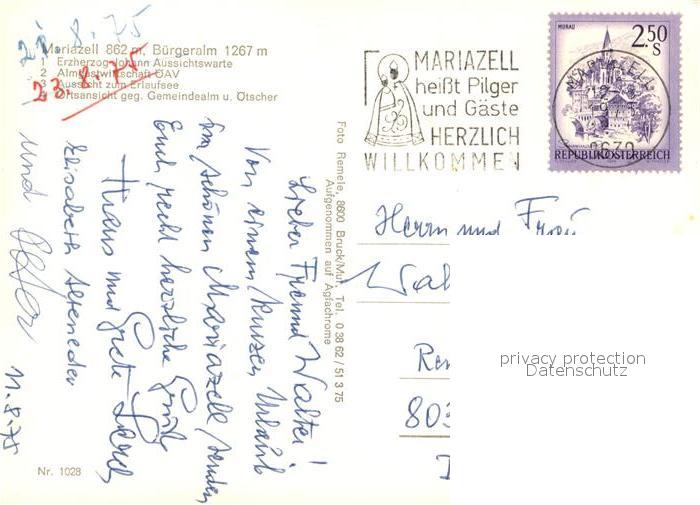 Mariazell 862 m, Bürgeralm 1267 m
1 Erzherzog Johann Aussichtswarte
2 Almgastwirtschaft ÖAV
3 Aussicht zum Erlaufsee
4 Ortsansicht geg. Gemeindealm u. Ötscher
23.8.75
MARIAZELL
heißt Pilger
und Gäste
HERZLICH
WILLKOMMEN
MURAU
2.50
S
REPUBLIK ÖSTERREICH
8630
Foto Remele, 8600 Bruck/Mur, Tel. 0 38 62 / 51 3 75
Aufgenommen auf Agfachrome
Lieber Freund Walter!
Von einem kurzen Urlaub
im schönen Mariazell senden
Euch recht herzliche Grüße
Hans und Grete
Elisabeth
und Peter
11.8.75
Nr. 1028
Herrn und Frau
Wal
Ren
803
privacy protection
Datenschutz